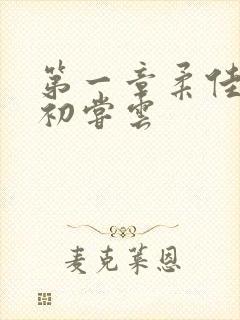 第一章柔佳
初尝云
麦克莱恩